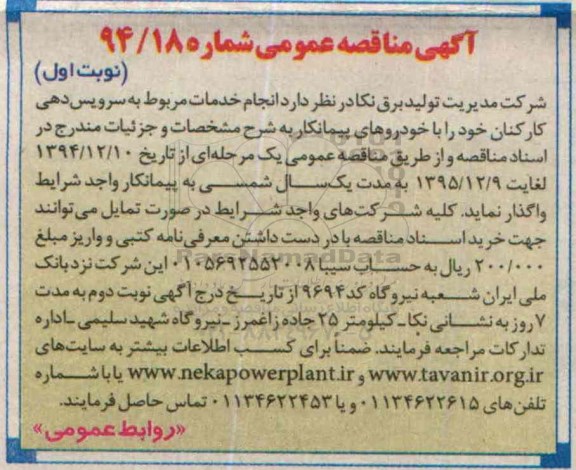 آگهی مناقصه عمومی شماره ۹۴/۱۸
(نوبت اول)
شرکت مدیریت تولید برق نکا در نظر دارد انجام خدمات مربوط به سرویس‌دهی
کارکنان خود را با خودروهای پیمانکار به شرح مشخصات و جزئیات مندرج در
اسناد مناقصه و از طریق مناقصه عمومی یک مرحله‌ای از تاریخ ۱۳۹۴/۱۲/۱۰
لغایت ۱۳۹۵/۱۲/۹ به مدت یک‌سال شمسی به پیمانکار واجد شرایط
واگذار نماید. کلیه شرکت‌های واجد شرایط در صورت تمایل می‌توانند
جهت خرید اسناد مناقصه با در دست داشتن معرفی‌نامه کتبی و واریز مبلغ
۲۰۰/۰۰۰ ریال به حساب سیبا ۰۱۰۵۶۹۲۵۵۲۰۰۸ این شرکت نزد بانک
ملی ایران شعبه نیروگاه کد ۹۶۹۴ از تاریخ درج آگهی نوبت دوم به مدت
۷ روز به نشانی نکا-کیلومتر ۲۵ جاده زاغمرز -نیروگاه شهید سلیمی-اداره
تدارکات مراجعه فرمایند. ضمنا برای کسب اطلاعات بیشتر به سایت‌های
www.tavanir.org.ir و www.nekapowerplant.ir یا با شماره
تلفن‌های ۰۱۱۳۴۶۲۲۶۱۵ و یا ۰۱۱۳۴۶۲۲۴۵۳ تماس حاصل فرمایند.
«روابط عمومی»